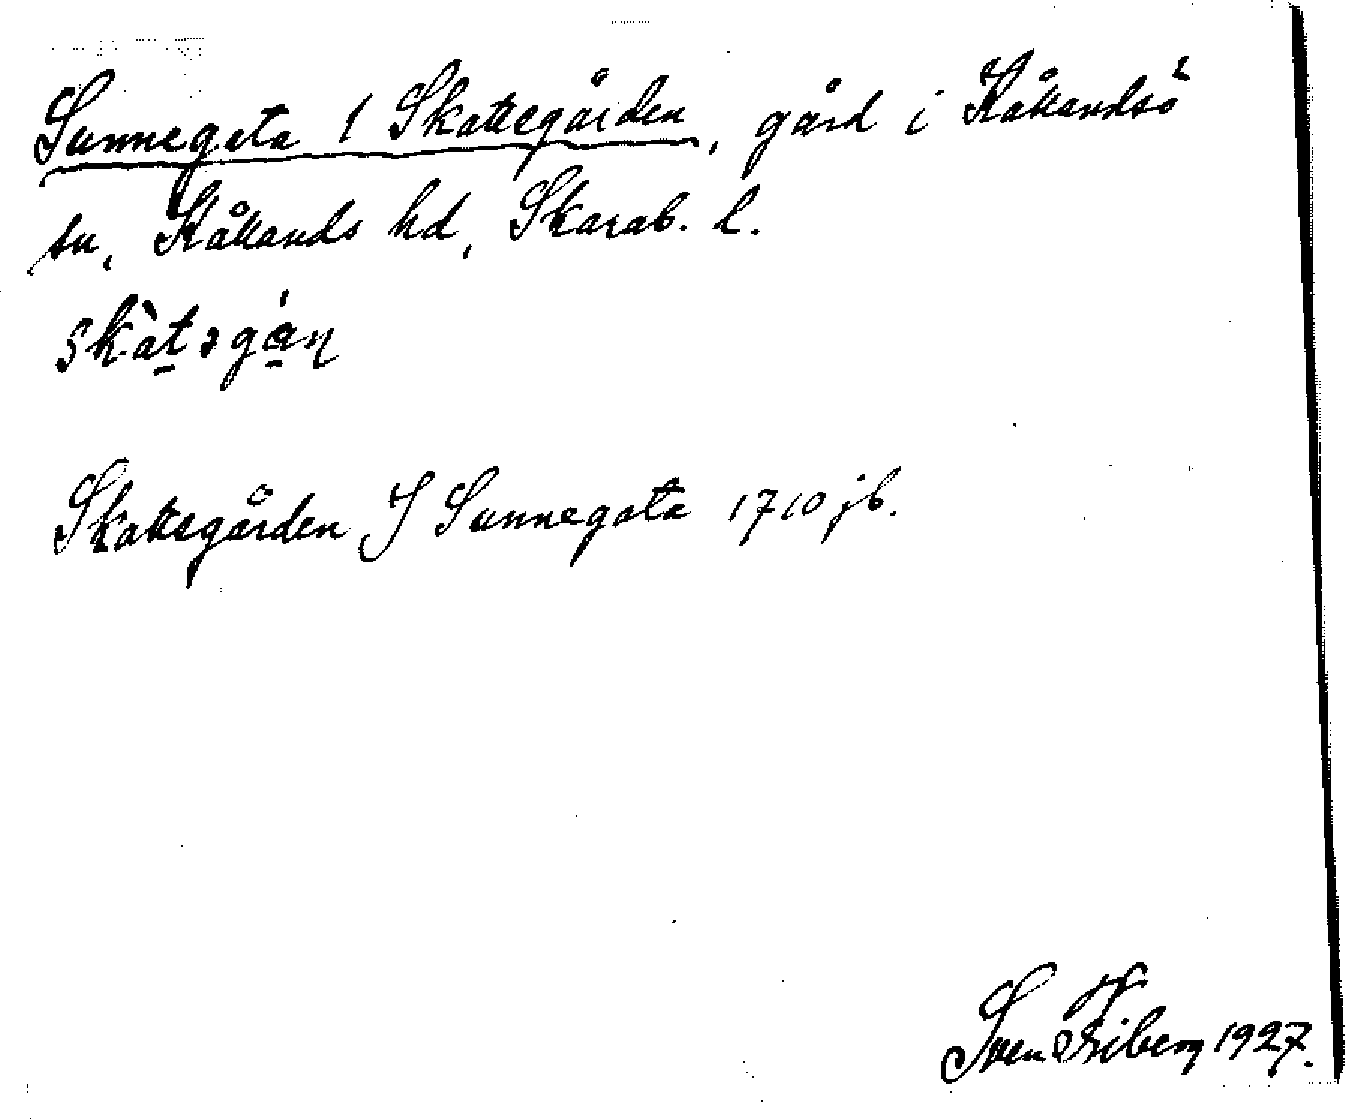 Sunnegeta 1 Skattegården, gård i Kållandsö
sn, Kållands hd, Skarab. l.
skàtəgán
Skattegården J Sunnegata 1710 jb.
Sven Friberg 1927.